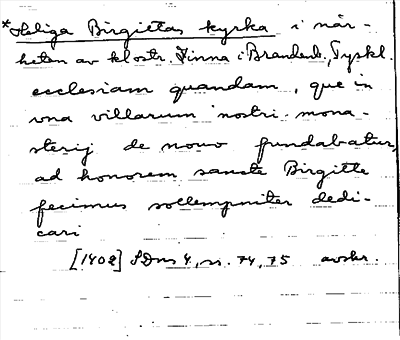 *Heliga Birgittas kyrka i när-
heten av klostr. Zinna i Brandenb., Tyskl.
ecclesiam quandam, que in
vna villarum nostri mona-
sterij de nouo fundabatur,
ad honorem sancte Birgitte
fecimus sollempniter dedi-
cari
[1402] SDns 4, nr. 74, 75 avskr.